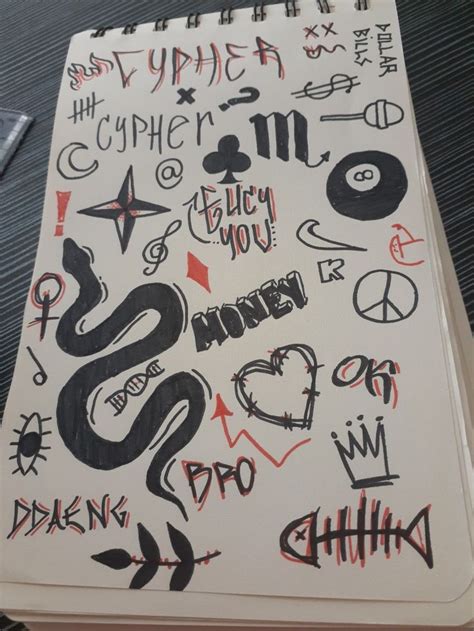 CYPHER
DOLLAR
BILLS
CYPHER
?
$
@
8
!
YOU
MONEY
OK
BRO
DDAENG